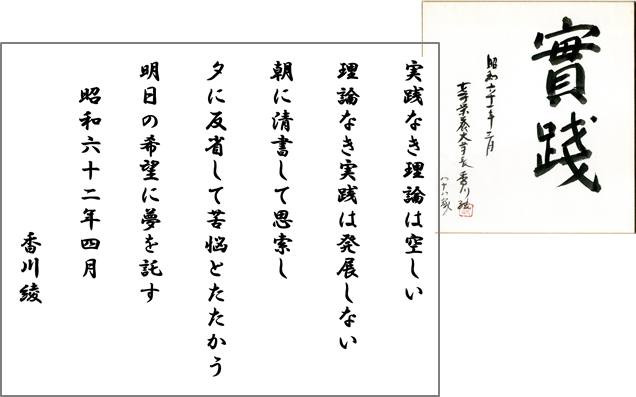 實踐
女子栄養大学長 香川綾
(八十八歳)
実践なき理論は空しい
理論なき実践は発展しない
朝に清書して思索し
夕に反省して苦悩とたたかう
明日の希望に夢を託す
昭和六十二年四月
香川綾